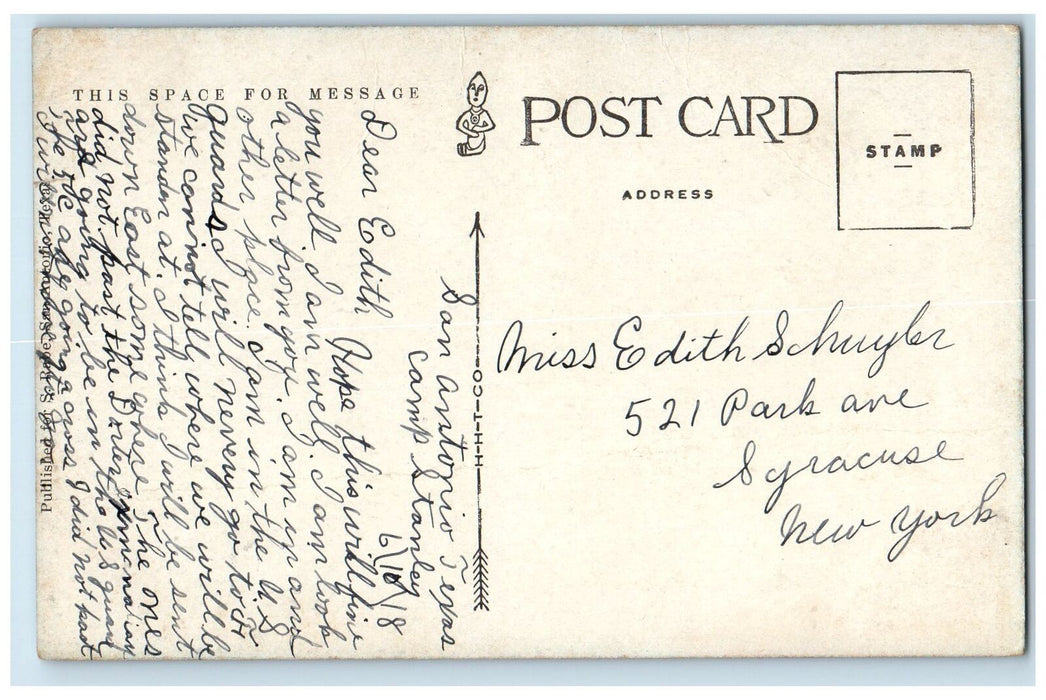 THIS SPACE FOR MESSAGE
San Antonio Texas
Camp Stanley
6/10/18
Dear Edith Hope this will find
you well I am well. I am look
a letter from you. I am in and
other place. I am in the U.S
Guards I will never go to Fr
we cannot tell where we will be
standen at. I think I will be sent
down East some where The ones
did not past the
are going to be in the U S guar
the are going a cross I did not past
Published
H-H-T-CO
POST CARD
ADDRESS
STAMP
Miss Edith Schuyler
521 Park ave
Syracuse
New York